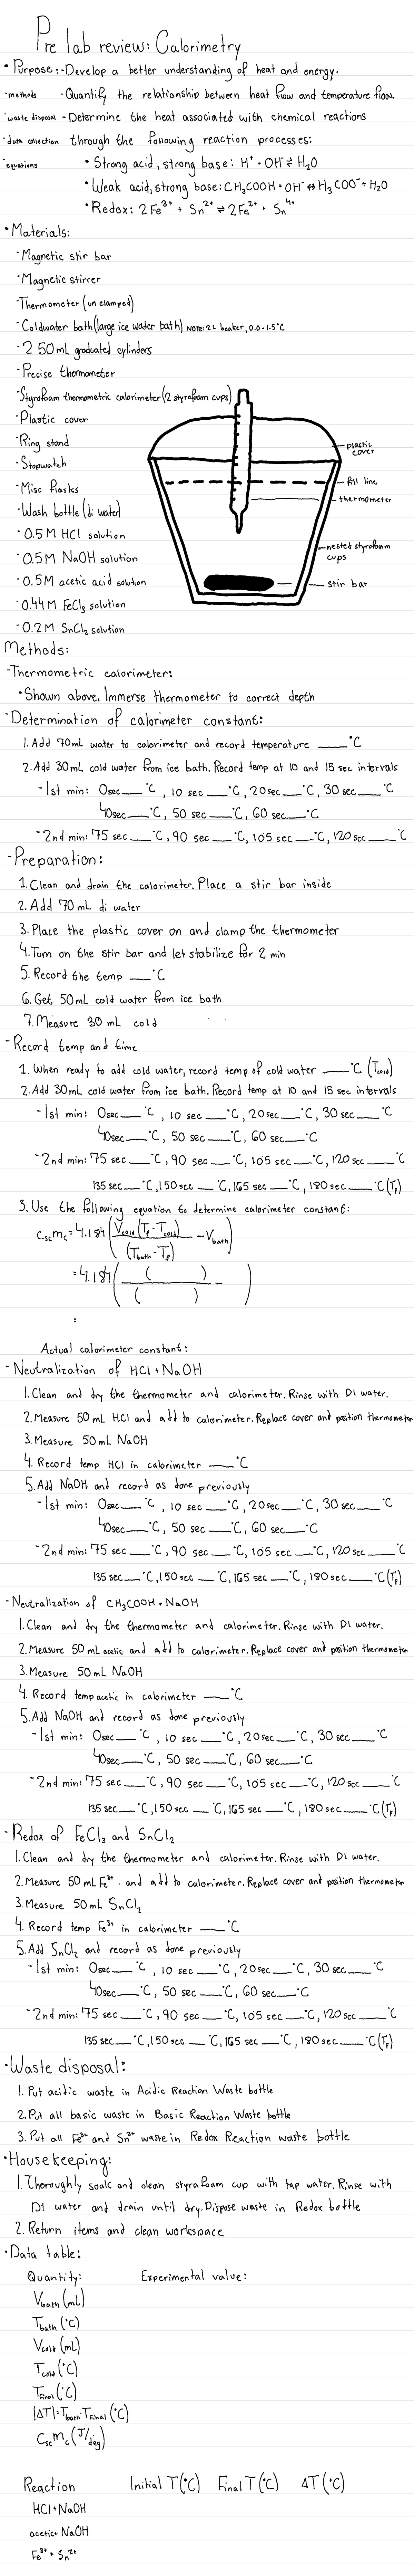 Pre lab review: Calorimetry
• Purpose: - Develop a better understanding of heat and energy.
-methods - Quantify the relationship between heat flow and temperature flow.
-waste disposal - Determine the heat associated with chemical reactions
-data collection through the following reaction processes:
-equations • Strong acid, strong base: H⁺ + OH⁻ ⇌ H₂O
• Weak acid, strong base: CH₃COOH + OH⁻ ⇔ H₃COO⁻ + H₂O
• Redox: 2Fe³⁺ + Sn²⁺ ⇌ 2Fe²⁺ + Sn⁴⁺
• Materials:
-Magnetic stir bar
-Magnetic stirrer
-Thermometer (unclamped)
-Coldwater bath (large ice water bath) NOTE: 2L beaker, 0.0-1.5°C
-2 50mL graduated cylinders
-Precise thermometer
-Styrofoam thermometric calorimeter (2 styrofoam cups)
-Plastic cover
-Ring stand
-Stopwatch
-Misc flasks
-Wash bottle (di water)
-0.5M HCl solution
-0.5M NaOH solution
-0.5M acetic acid solution
-0.44M FeCl₃ solution
-0.2M SnCl₂ solution
plastic cover
fill line
thermometer
nested styrofoam cups
stir bar
Methods:
-Thermometric calorimeter:
• Shown above. Immerse thermometer to correct depth
-Determination of calorimeter constant:
1. Add 70mL water to calorimeter and record temperature ____°C
2. Add 30mL cold water from ice bath. Record temp at 10 and 15 sec intervals
-1st min: 0sec ___°C, 10 sec ___°C, 20sec ___°C, 30 sec ___°C
40sec ___°C, 50 sec ___°C, 60 sec ___°C
-2nd min: 75 sec ___°C, 90 sec ___°C, 105 sec ___°C, 120 sec ___°C
-Preparation:
1. Clean and drain the calorimeter. Place a stir bar inside
2. Add 70mL di water
3. Place the plastic cover on and clamp the thermometer
4. Turn on the stir bar and let stabilize for 2 min
5. Record the temp ___°C
6. Get 50mL cold water from ice bath
7. Measure 30 mL cold
-Record temp and time
1. When ready to add cold water, record temp of cold water ____°C (Tcold)
2. Add 30mL cold water from ice bath. Record temp at 10 and 15 sec intervals
-1st min: 0sec ___°C, 10 sec ___°C, 20sec ___°C, 30 sec ___°C
40sec ___°C, 50 sec ___°C, 60 sec ___°C
-2nd min: 75 sec ___°C, 90 sec ___°C, 105 sec ___°C, 120 sec ___°C
135 sec ___°C, 150 sec ___°C, 165 sec ___°C, 180 sec ___°C (Tf)
3. Use the following equation to determine calorimeter constant:
Cscmc = 4.184 (Vcold (Tf - Tcold) / (Tbath - Tf) - Vbath)
= 4.184 ( ( ) / ( ) - )
=
Actual calorimeter constant:
- Neutralization of HCl + NaOH
1. Clean and dry the thermometer and calorimeter. Rinse with DI water.
2. Measure 50 mL HCl and add to calorimeter. Replace cover and position thermometer
3. Measure 50 mL NaOH
4. Record temp HCl in calorimeter ___°C
5. Add NaOH and record as done previously
-1st min: 0sec ___°C, 10 sec ___°C, 20sec ___°C, 30 sec ___°C
40sec ___°C, 50 sec ___°C, 60 sec ___°C
-2nd min: 75 sec ___°C, 90 sec ___°C, 105 sec ___°C, 120 sec ___°C
135 sec ___°C, 150 sec ___°C, 165 sec ___°C, 180 sec ___°C (Tf)
- Neutralization of CH₃COOH + NaOH
1. Clean and dry the thermometer and calorimeter. Rinse with DI water.
2. Measure 50 mL acetic and add to calorimeter. Replace cover and position thermometer
3. Measure 50 mL NaOH
4. Record temp acetic in calorimeter ___°C
5. Add NaOH and record as done previously
-1st min: 0sec ___°C, 10 sec ___°C, 20sec ___°C, 30 sec ___°C
40sec ___°C, 50 sec ___°C, 60 sec ___°C
-2nd min: 75 sec ___°C, 90 sec ___°C, 105 sec ___°C, 120 sec ___°C
135 sec ___°C, 150 sec ___°C, 165 sec ___°C, 180 sec ___°C (Tf)
- Redox of FeCl₃ and SnCl₂
1. Clean and dry the thermometer and calorimeter. Rinse with DI water.
2. Measure 50 mL Fe³⁺ and add to calorimeter. Replace cover and position thermometer
3. Measure 50 mL SnCl₂
4. Record temp Fe³⁺ in calorimeter ___°C
5. Add SnCl₂ and record as done previously
-1st min: 0sec ___°C, 10 sec ___°C, 20sec ___°C, 30 sec ___°C
40sec ___°C, 50 sec ___°C, 60 sec ___°C
-2nd min: 75 sec ___°C, 90 sec ___°C, 105 sec ___°C, 120 sec ___°C
135 sec ___°C, 150 sec ___°C, 165 sec ___°C, 180 sec ___°C (Tf)
• Waste disposal:
1. Put acidic waste in Acidic Reaction Waste bottle
2. Put all basic waste in Basic Reaction Waste bottle
3. Put all Fe³⁺ and Sn²⁺ waste in Redox Reaction waste bottle
• Housekeeping:
1. Thoroughly soak and clean styrafoam cup with tap water. Rinse with
DI water and drain until dry. Dispose waste in Redox bottle
2. Return items and clean workspace
• Data table:
Quantity: Experimental value:
Vbath (mL)
Tbath (°C)
Vcold (mL)
Tcold (°C)
Tfinal (°C)
|ΔT| = Tbath - Tfinal (°C)
Cscmc (J/deg)
Reaction Initial T(°C) Final T(°C) ΔT(°C)
HCl + NaOH
acetic + NaOH
Fe³⁺ + Sn²⁺